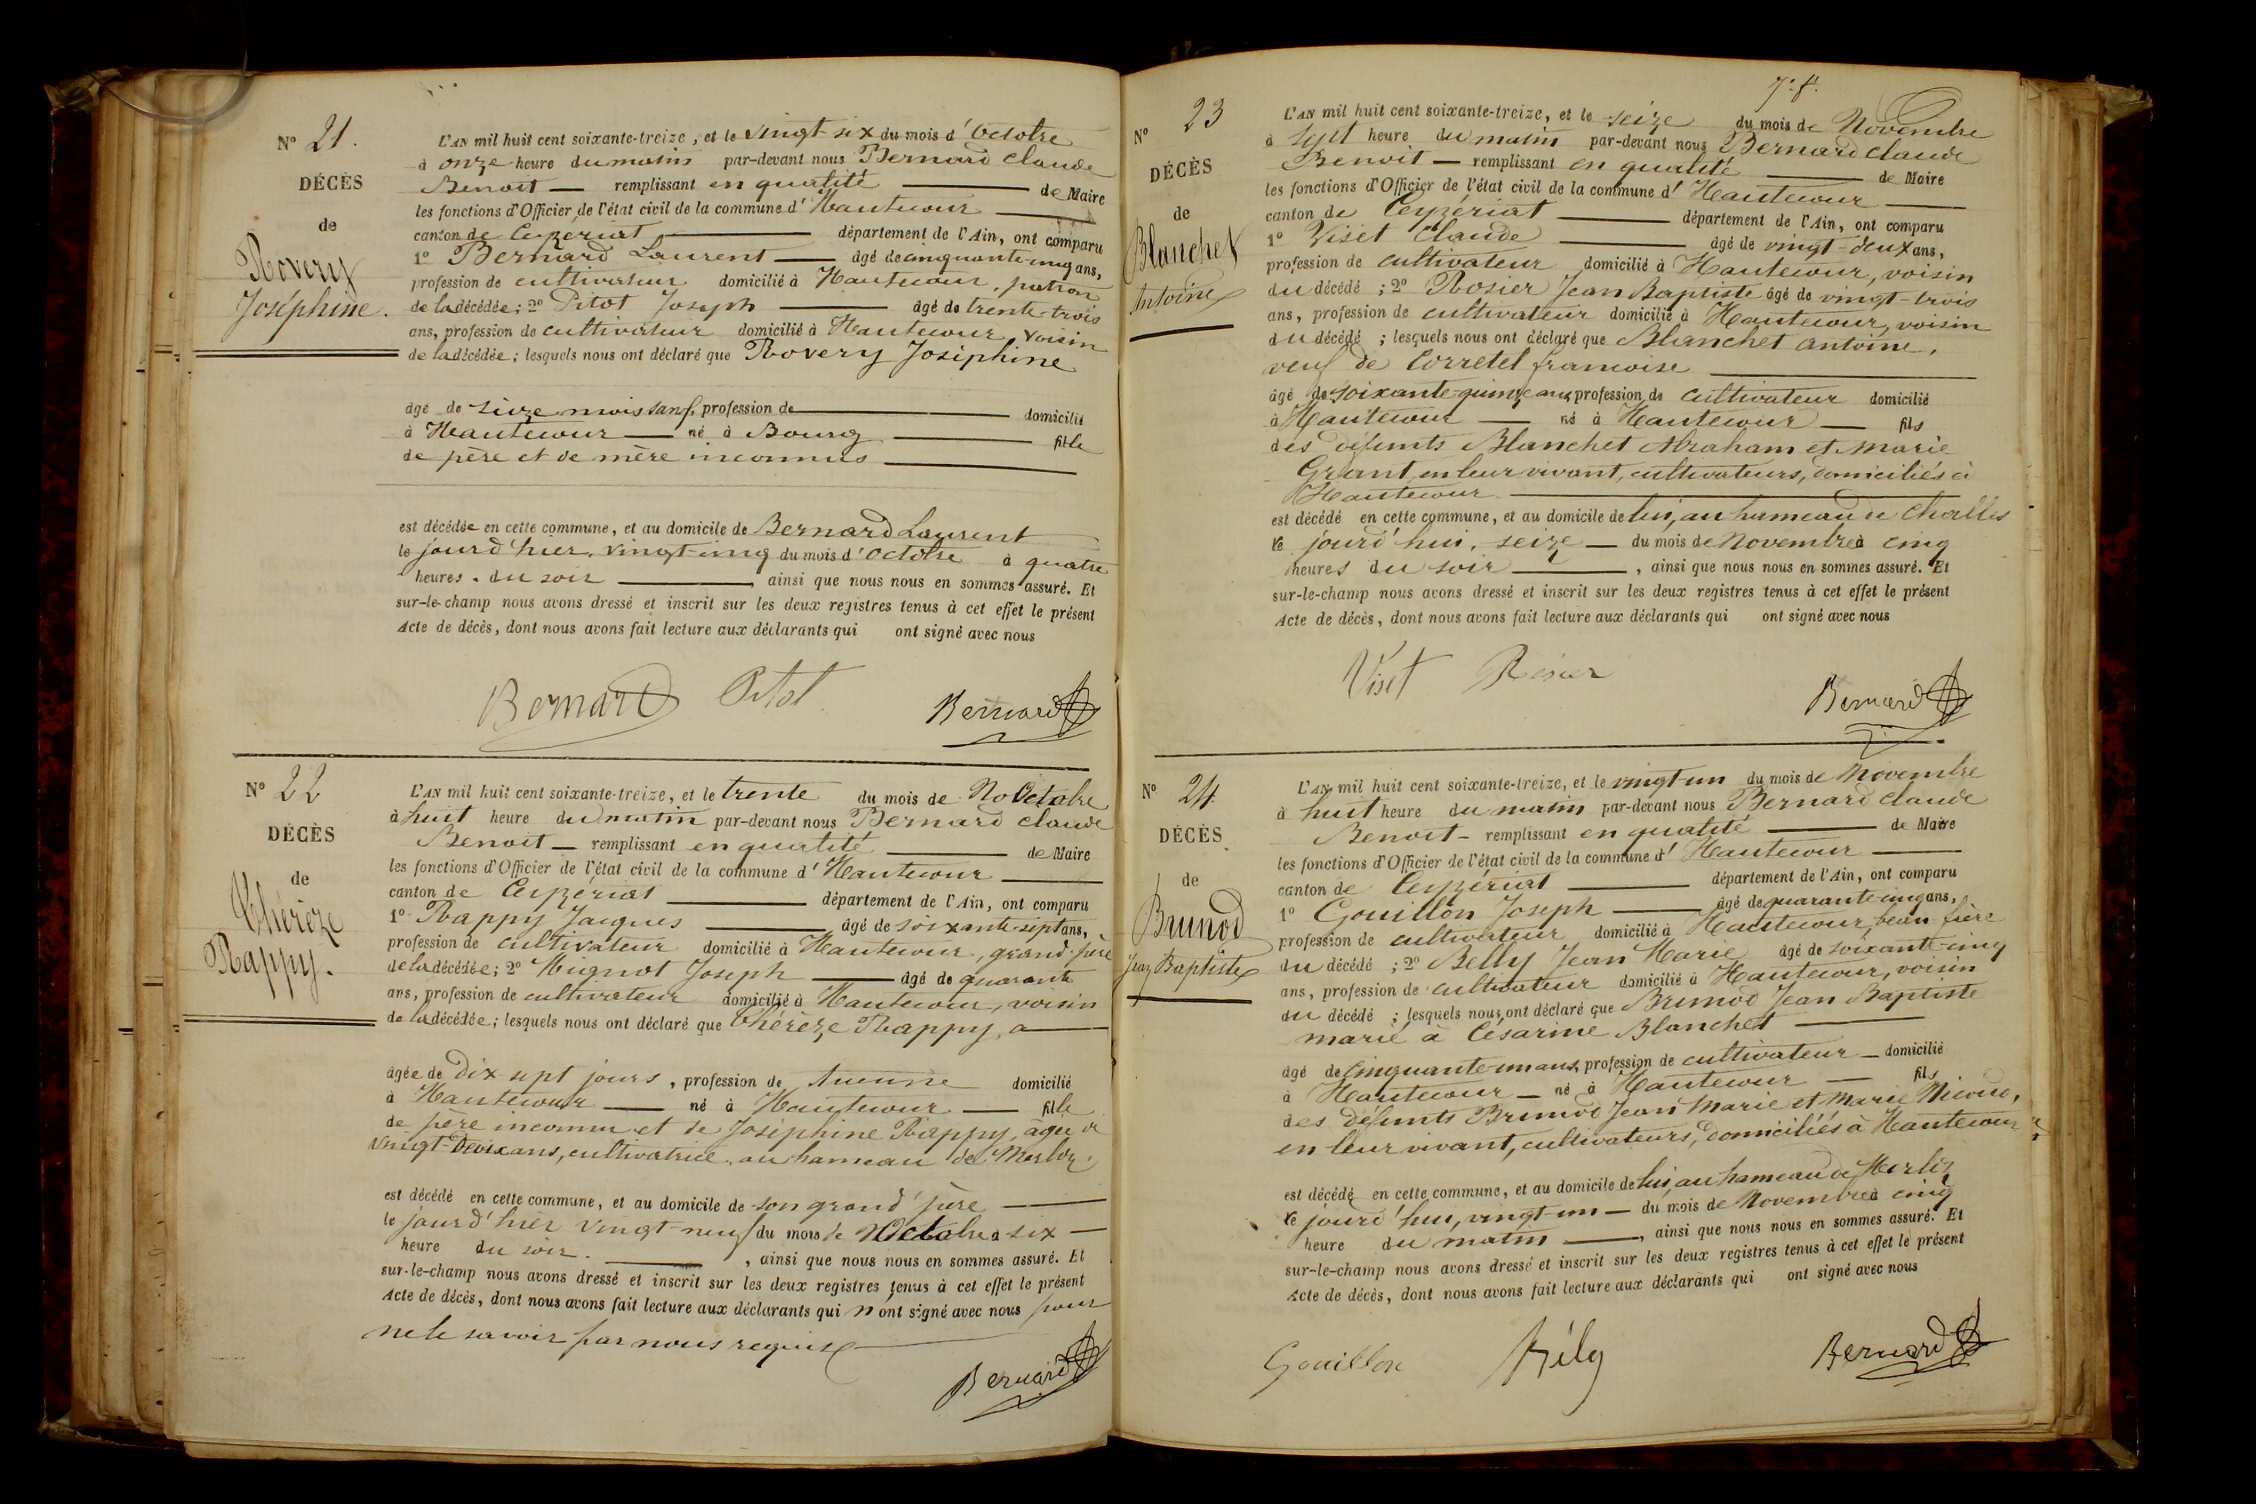 N° 21.
DÉCÈS
de
Rovery
Joséphine.
L'AN mil huit cent soixante-treize, et le vingt-six du mois d'Octobre
à onze heure du matin par-devant nous Bernard Claude
Benoit — remplissant en qualité — de Maire
les fonctions d'Officier de l'état civil de la commune d'Hautecour —
canton de Ceyzériat — département de l'Ain, ont comparu
1° Bernard Laurent — âgé de cinquante-cinq ans,
profession de cultivateur domicilié à Hautecour, patron
de la décédée; 2° Pitot Joseph — âgé de trente-trois
ans, profession de cultivateur domicilié à Hautecour, voisin
de la décédée; lesquels nous ont déclaré que Rovery Joséphine
âgé de seize mois sans profession de — domicilié
à Hautecour — né à Bourg — fille
de père et de mère inconnus —
est décédée en cette commune, et au domicile de Bernard Laurent
le jourd'hier, vingt-cinq du mois d'octobre à quatre
heures du soir —, ainsi que nous nous en sommes assuré. Et
sur-le-champ nous avons dressé et inscrit sur les deux registres tenus à cet effet le présent
Acte de décès, dont nous avons fait lecture aux déclarants qui ont signé avec nous
Bernard Pitot Bernard
N° 22
DÉCÈS
de
Thérèze
Rappy.
L'AN mil huit cent soixante-treize, et le trente du mois de Octobre
à huit heure du matin par-devant nous Bernard Claude
Benoit — remplissant en qualité — de Maire
les fonctions d'Officier de l'état civil de la commune d'Hautecour —
canton de Ceyzériat — département de l'Ain, ont comparu
1° Rappy Jacques — âgé de soixante-sept ans,
profession de cultivateur domicilié à Hautecour, grand-père
de la décédée; 2° Mignot Joseph — âgé de quarante
ans, profession de cultivateur domicilié à Hautecour, voisin
de la décédée; lesquels nous ont déclaré que Thérèze Rappy, a —
âgée de dix-sept jours, profession de Aucune domicilié
à Hautecour — né à Hautecour — fille
de père inconnu et de Joséphine Rappy, âgée de
vingt-deux ans, cultivatrice au hameau de Merloz.
est décédé en cette commune, et au domicile de son grand'père —
le jourd'hier vingt-neuf du mois de Octobre à six —
heure du soir. —, ainsi que nous nous en sommes assuré. Et
sur-le-champ nous avons dressé et inscrit sur les deux registres tenus à cet effet le présent
Acte de décès, dont nous avons fait lecture aux déclarants qui n'ont signé avec nous pour
ne le savoir par nous requis
Bernard
N° 23
DÉCÈS
de
Blanchet
Antoine
L'AN mil huit cent soixante-treize, et le seize du mois de Novembre
à sept heure du matin par-devant nous Bernard Claude
Benoit — remplissant en qualité — de Maire
les fonctions d'Officier de l'état civil de la commune d'Hautecour —
canton de Ceyzériat — département de l'Ain, ont comparu
1° Viset Claude — âgé de vingt-deux ans,
profession de cultivateur domicilié à Hautecour, voisin
du décédé; 2° Rosier Jean Baptiste âgé de vingt-trois
ans, profession de cultivateur domicilié à Hautecour, voisin
du décédé; lesquels nous ont déclaré que Blanchet antoine,
veuf de Corretel francoise —
âgé de soixante-quinze ans, profession de cultivateur domicilié
à Hautecour — né à Hautecour — fils
des défunts Blanchet Abraham et Marie
en leur vivant, cultivateurs, domiciliés à
Hautecour —
est décédé en cette commune, et au domicile de lui, au hameau de Challes
le jourd'hui, seize — du mois de Novembre à cinq
heures du soir —, ainsi que nous nous en sommes assuré. Et
sur-le-champ nous avons dressé et inscrit sur les deux registres tenus à cet effet le présent
Acte de décès, dont nous avons fait lecture aux déclarants qui ont signé avec nous
Viset Rosier Bernard
N° 24
DÉCÈS
de
Brunod
Jean Baptiste
L'AN mil huit cent soixante-treize, et le vingt-un du mois de Novembre
à huit heure du matin par-devant nous Bernard Claude
Benoit — remplissant en qualité — de Maire
les fonctions d'Officier de l'état civil de la commune d'Hautecour —
canton de Ceyzériat — département de l'Ain, ont comparu
1° Gouillon Joseph — âgé de quarante-cinq ans,
profession de cultivateur domicilié à Hautecour, beau-frère
du décédé; 2° Belly Jean Marie âgé de soixante-cinq
ans, profession de cultivateur domicilié à Hautecour, voisin
du décédé; lesquels nous ont déclaré que Brunod Jean Baptiste
marié à Césarine Blanchet —
âgé de cinquante un ans, profession de cultivateur — domicilié
à Hautecour — né à Hautecour — fils
des défunts Brunod Jean Marie et Marie Nicoud,
en leur vivant, cultivateurs, domiciliés à Hautecour
est décédé en cette commune, et au domicile de lui, au hameau de Merloz
le jourd'hui, vingt-un — du mois de Novembre à cinq
heure du matin —, ainsi que nous nous en sommes assuré. Et
sur-le-champ nous avons dressé et inscrit sur les deux registres tenus à cet effet le présent
Acte de décès, dont nous avons fait lecture aux déclarants qui ont signé avec nous
Gouillon Bély Bernard